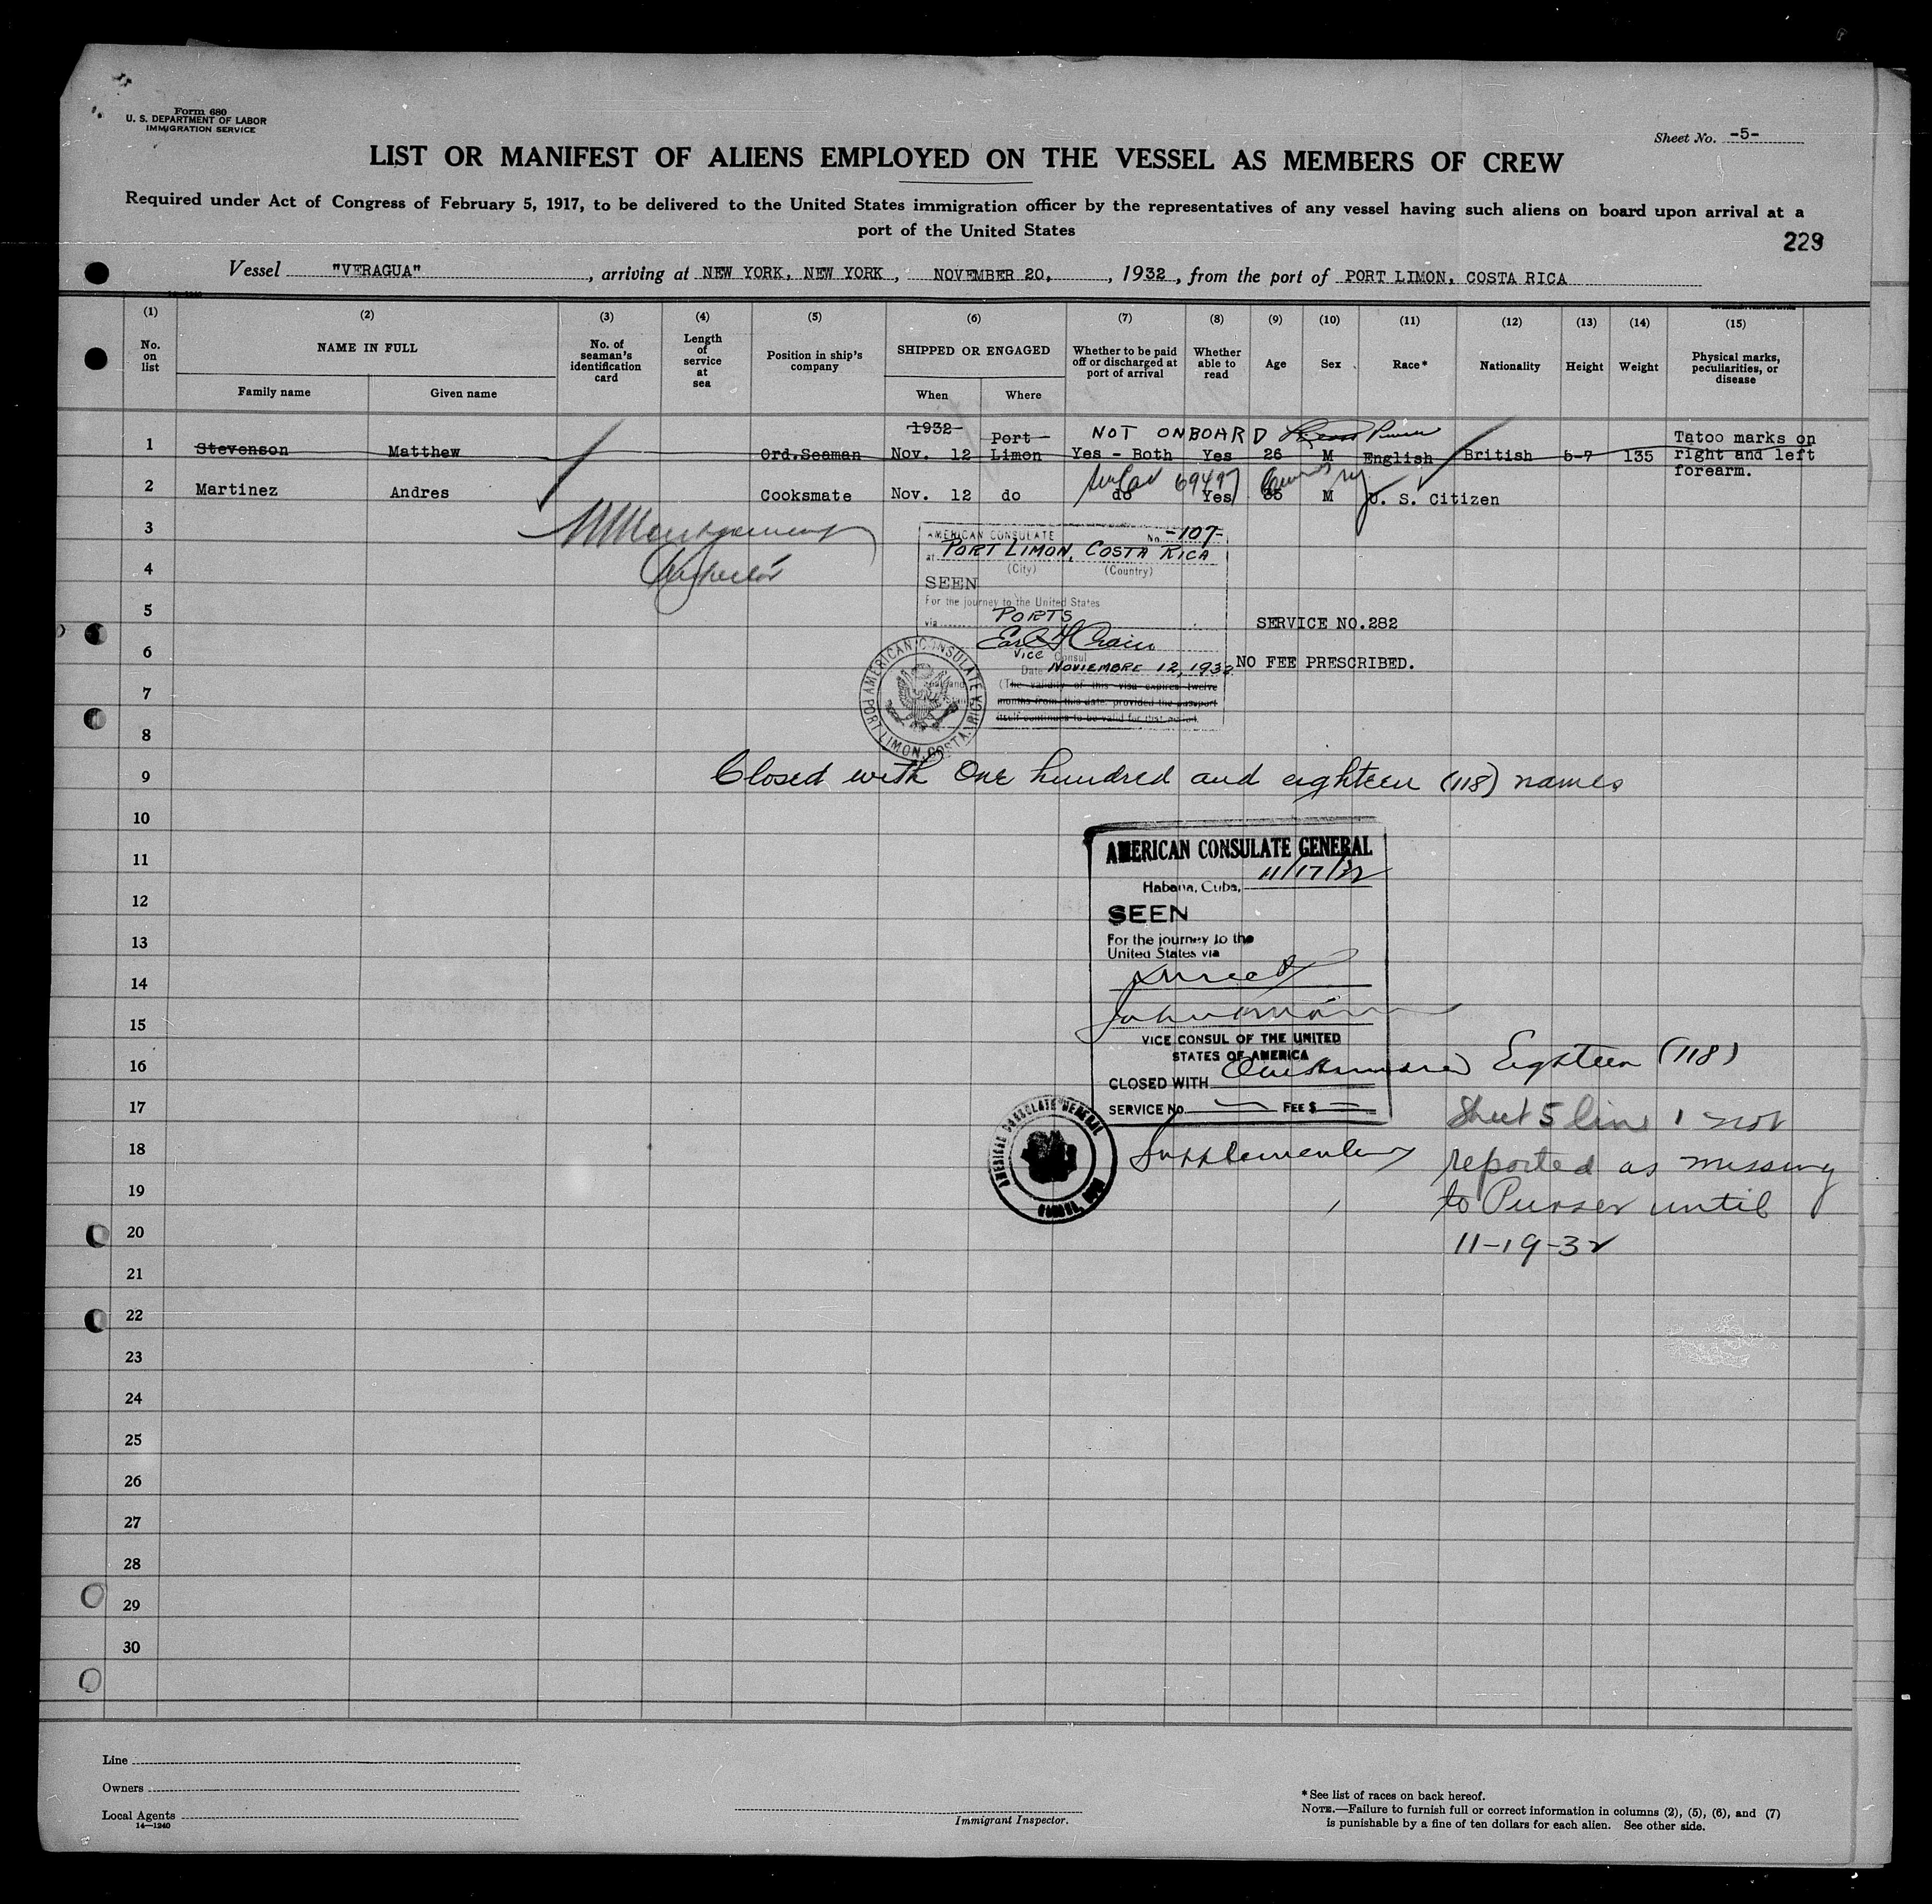 Form 680
U. S. DEPARTMENT OF LABOR
IMMIGRATION SERVICE
Sheet No. -5-
LIST OR MANIFEST OF ALIENS EMPLOYED ON THE VESSEL AS MEMBERS OF CREW
Required under Act of Congress of February 5, 1917, to be delivered to the United States immigration officer by the representatives of any vessel having such aliens on board upon arrival at a
port of the United States
229
Vessel "VERAGUA", arriving at NEW YORK, NEW YORK, NOVEMBER 20, , 1932, from the port of PORT LIMON, COSTA RICA
(1) (2) (3) (4) (5) (6) (7) (8) (9) (10) (11) (12) (13) (14) (15)
No. on list
NAME IN FULL
Family name Given name
No. of seaman's identification card
Length of service at sea
Position in ship's company
SHIPPED OR ENGAGED
When Where
Whether to be paid off or discharged at port of arrival
Whether able to read
Age
Sex
Race*
Nationality
Height
Weight
Physical marks, peculiarities, or disease
1932 Port NOT ONBOARD Purser Tatoo marks on
1 Stevenson Matthew Ord.Seaman Nov. 12 Limon Yes - Both Yes 26 M English British 5-7 135 right and left
forearm.
69497
2 Martinez Andres Cooksmate Nov. 12 do do Yes 35 M U. S. Citizen
3
4
5
6
7
8
9
10
11
12
13
14
15
16
17
18
19
20
21
22
23
24
25
26
27
28
29
30
Inspector
AMERICAN CONSULATE No. -107-
at PORT LIMON, COSTA RICA
(City) (Country)
SEEN
For the journey to the United States
via PORTS
Vice Consul
Date NOVIEMBRE 12, 1932
(The validity of this visa expires twelve
months from this date provided the passport
itself continues to be valid for that period.
AMERICAN CONSULATE
PORT LIMON, COSTA RICA
SERVICE NO.282
NO FEE PRESCRIBED.
Closed with One hundred and eighteen (118) names
AMERICAN CONSULATE GENERAL
11/17/32
Habana, Cuba,
SEEN
For the journey to the
United States via
Direct
VICE CONSUL OF THE UNITED
STATES OF AMERICA
CLOSED WITH One Hundred Eighteen (118)
SERVICE No. FEE $
AMERICAN CONSULATE GENERAL
Supplementary
Sheet 5 line 1 not
reported as missing
to Purser until
11-19-32
Line
Owners
Local Agents
14—1240
Immigrant Inspector.
* See list of races on back hereof.
NOTE.—Failure to furnish full or correct information in columns (2), (5), (6), and (7)
is punishable by a fine of ten dollars for each alien. See other side.